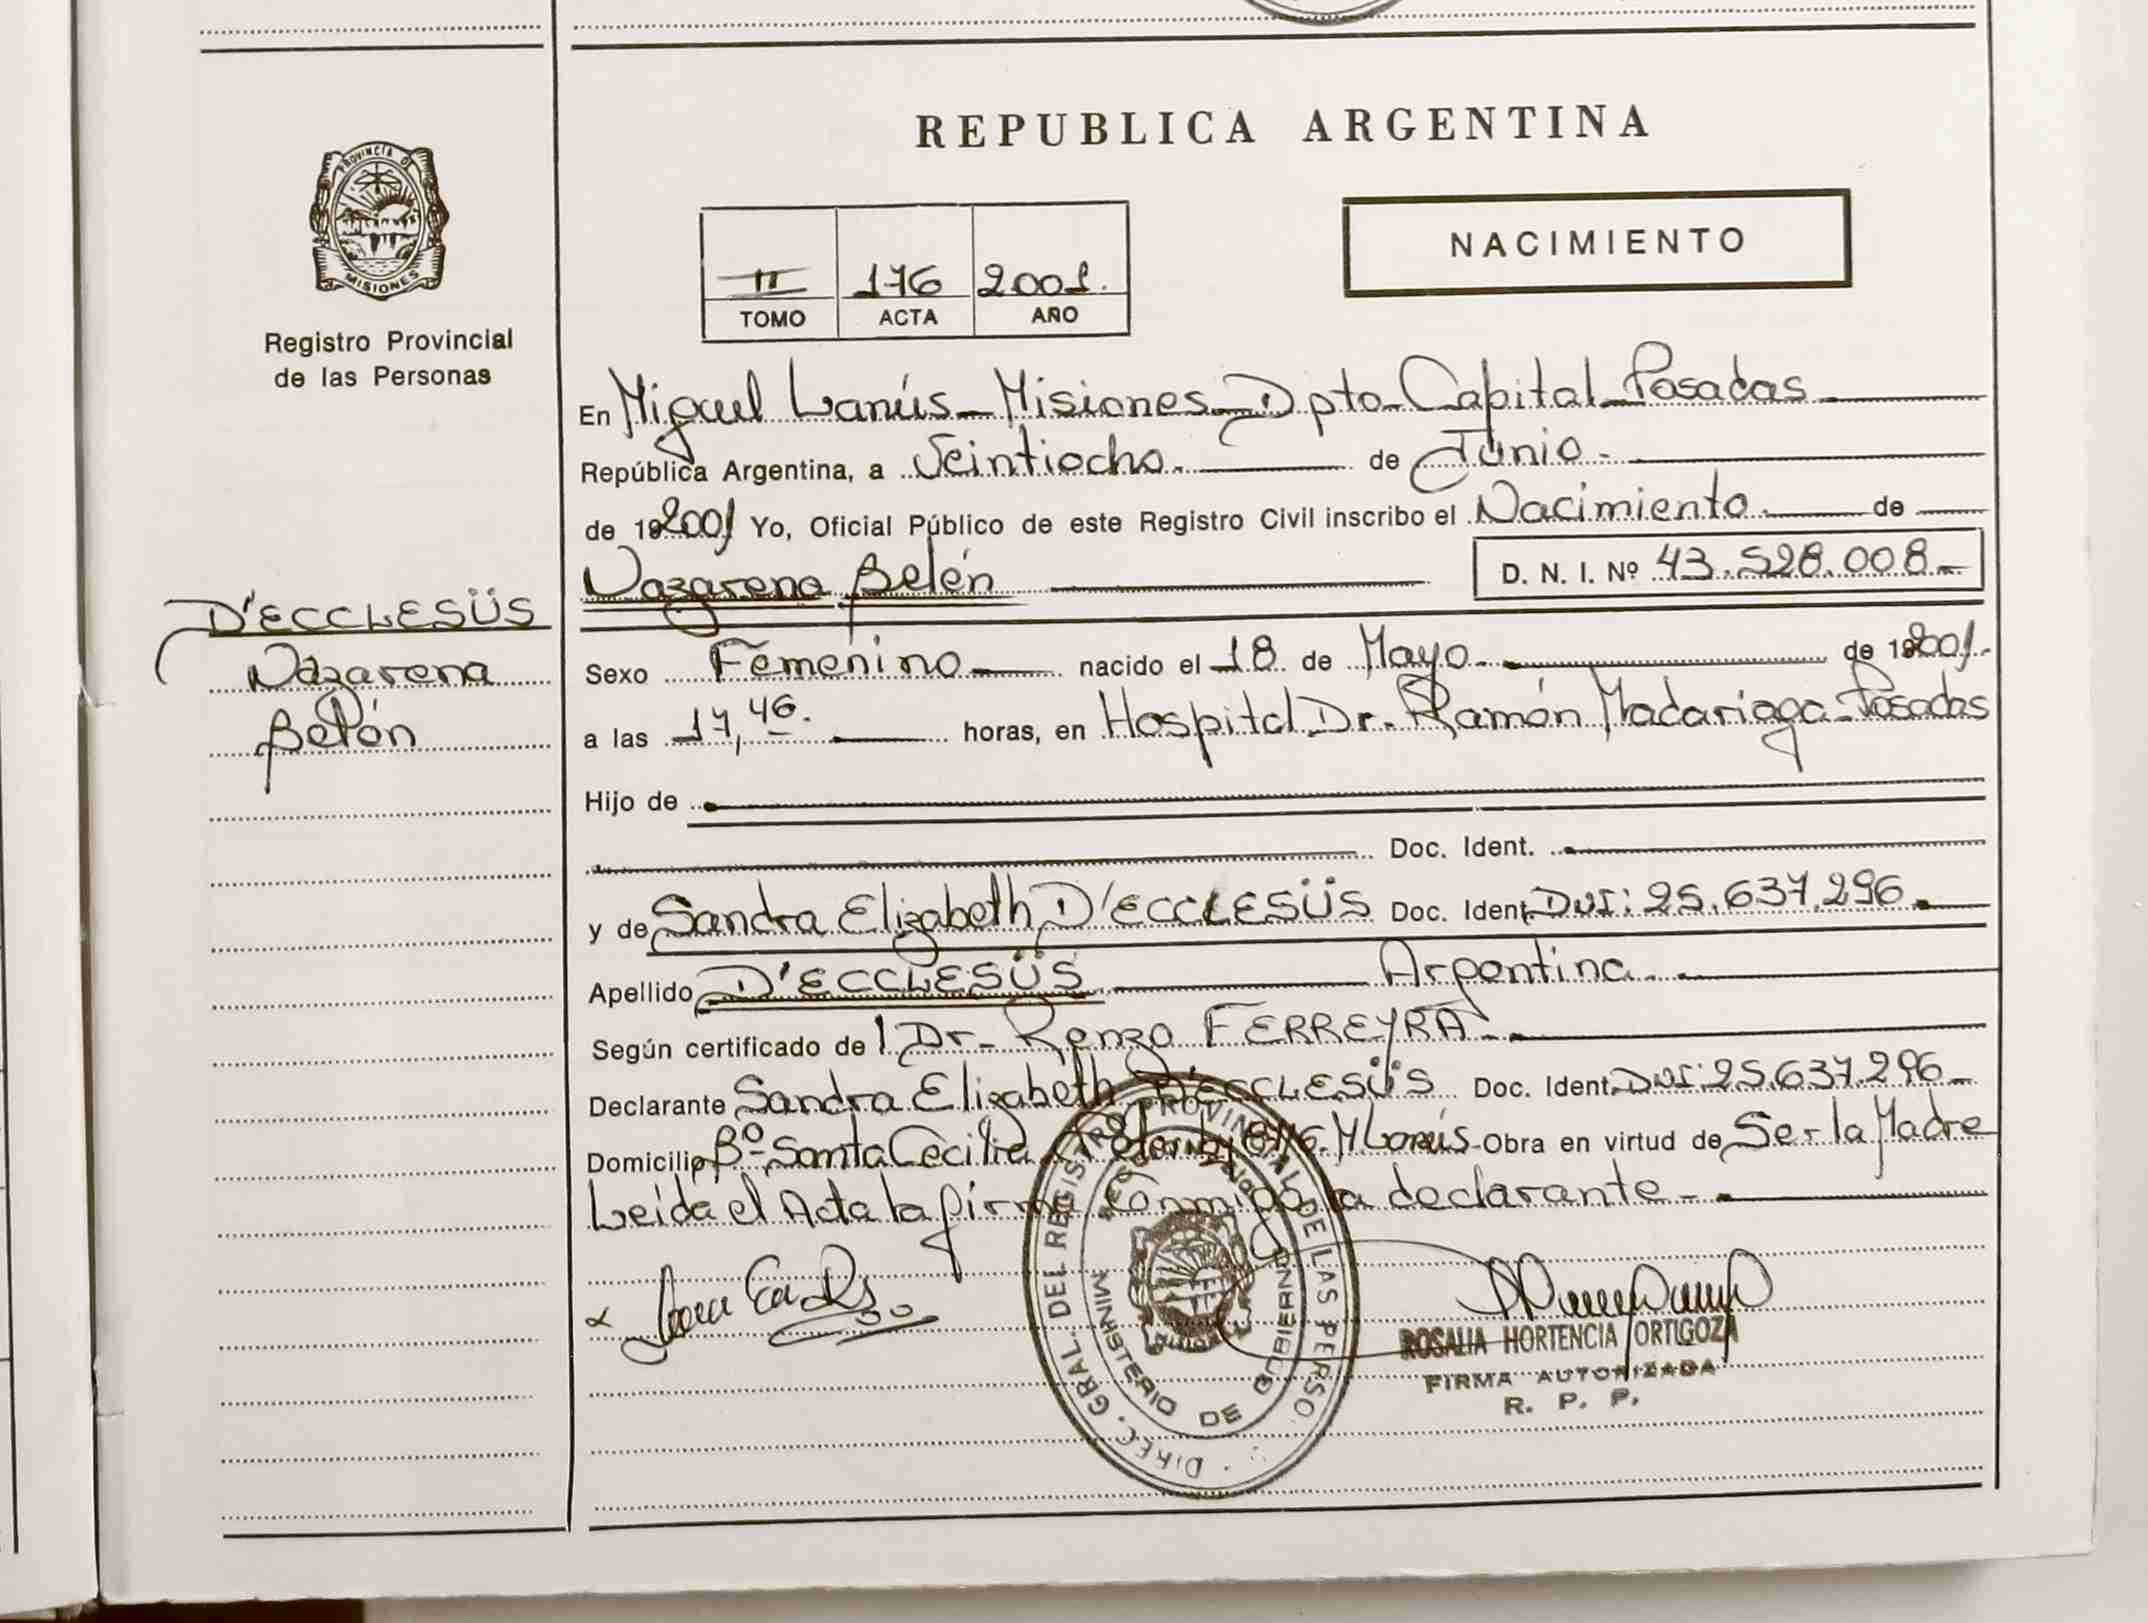 PROVINCIA DE
MISIONES
Registro Provincial
de las Personas
D'ECCLESÜS
Nazarena
Belén
REPUBLICA ARGENTINA
II 176 2001.
TOMO ACTA AÑO
NACIMIENTO
En Miguel Lanús - Misiones - Dpto - Capital - Posadas
República Argentina, a Veintiocho. de Junio.
de 192001 Yo, Oficial Público de este Registro Civil inscribo el Nacimiento de
Nazarena Belén D. N. I. Nº 43.528.008.-
Sexo Femenino nacido el 18 de Mayo de 192001.-
a las 17,46. horas, en Hospital Dr. Ramón Madariaga - Posadas
Hijo de
Doc. Ident.
y de Sandra Elizabeth D'ECCLESÜS Doc. Ident. DNI: 25.637.296.
Apellido D'ECCLESÜS Argentina.
Según certificado del Dr. Renzo FERREYRA.
Declarante Sandra Elizabeth D'ECCLESÜS Doc. Ident. DNI: 25.637.296
Domicilio Bº Santa Cecilia M Lanús - Obra en virtud de Ser la Madre
Leída el Acta la firma Conmigo la declarante -
DIREC. GRAL. DEL REGISTRO PROVINCIAL DE LAS PERSO.
MINISTERIO DE GOBIERNO
ROSALIA HORTENCIA ORTIGOZA
FIRMA AUTORIZADA
R. P. P.